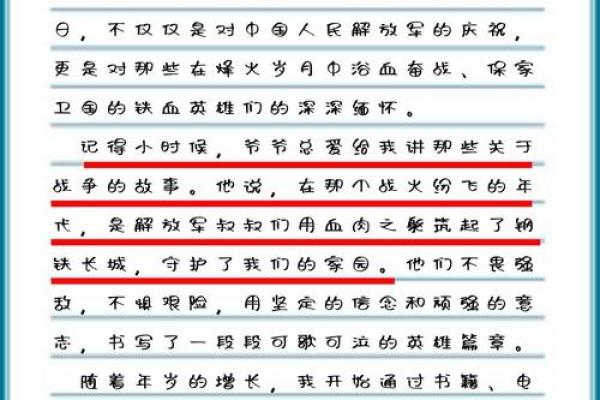 日，不仅仅是对中国人民解放军的庆祝，
更是对那些在烽火岁月中浴血奋战、保家
卫国的铁血英雄们的深深缅怀。
记得小时候，爷爷总爱给我讲那些关于
战争的故事。他说，在那个战火纷飞的年
代，是解放军叔叔们用血肉之躯筑起了钢
铁长城，守护了我们的家园。他们不畏强
敌，不惧艰险，用坚定的信念和顽强的意
志，书写了一段段可歌可泣的英雄篇章。
随着年岁的增长，我开始通过书籍、电